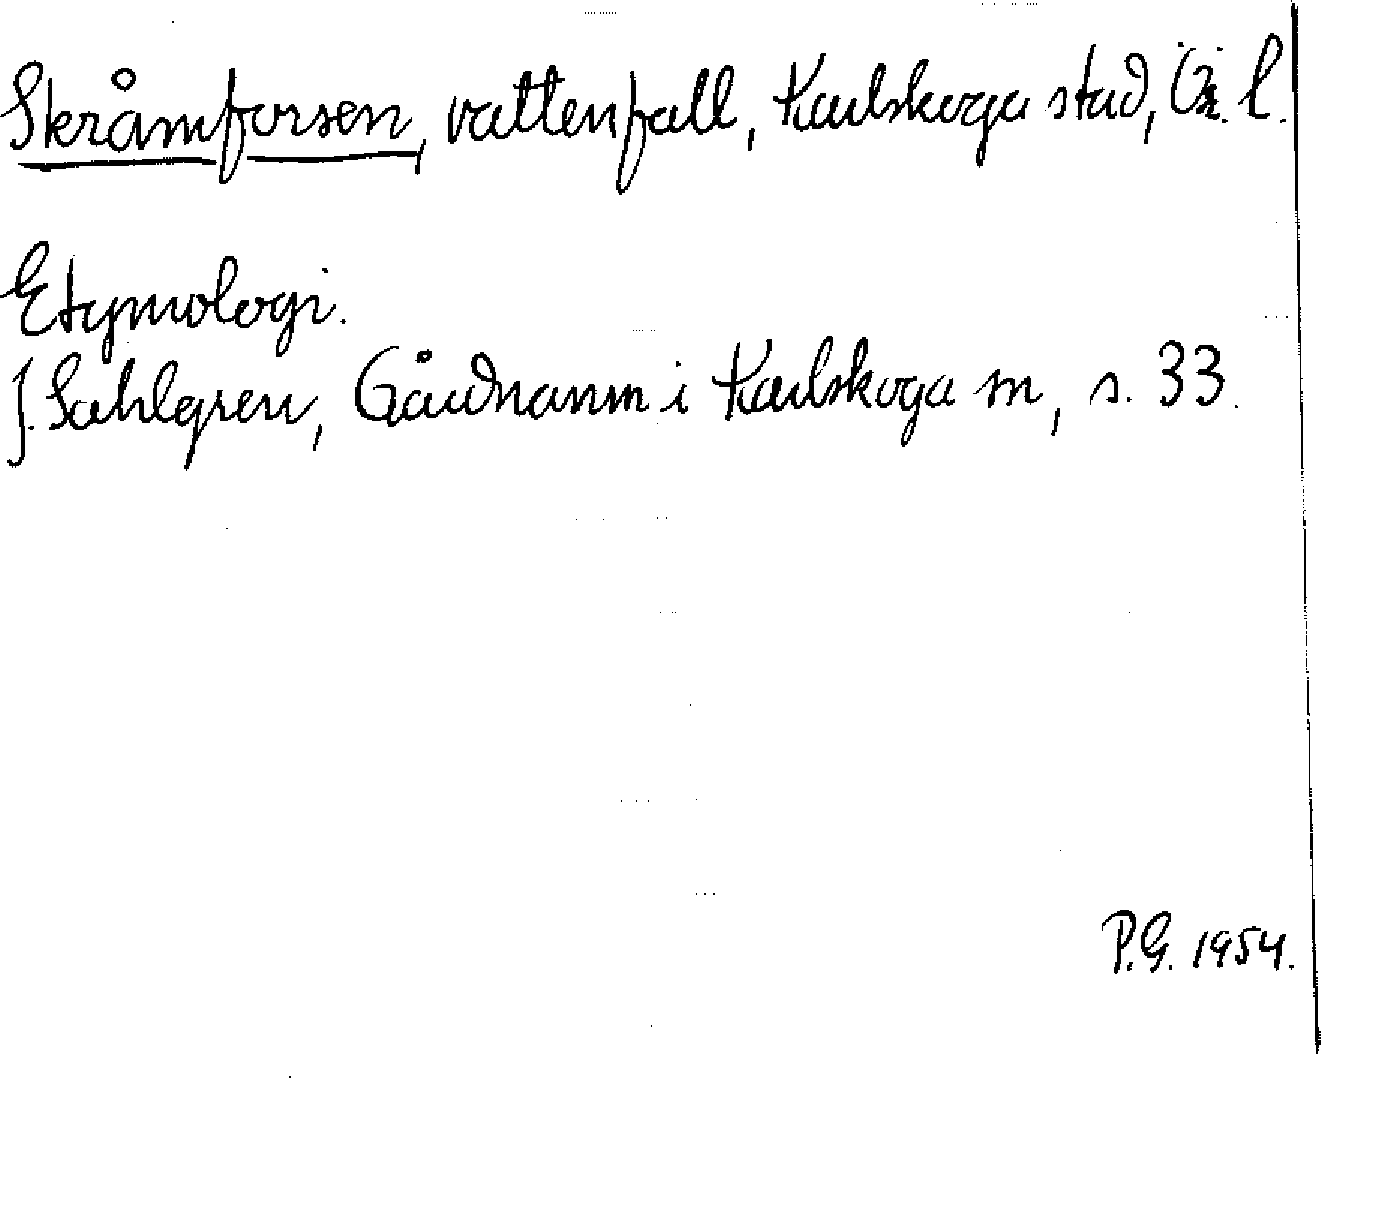 Skråmforsen, vattenfall, Karlskoga stad, Ör. l.
Etymologi.
J. Sahlgren, Gårdnamn i Karlskoga sn, s. 33.
P.G. 1954.